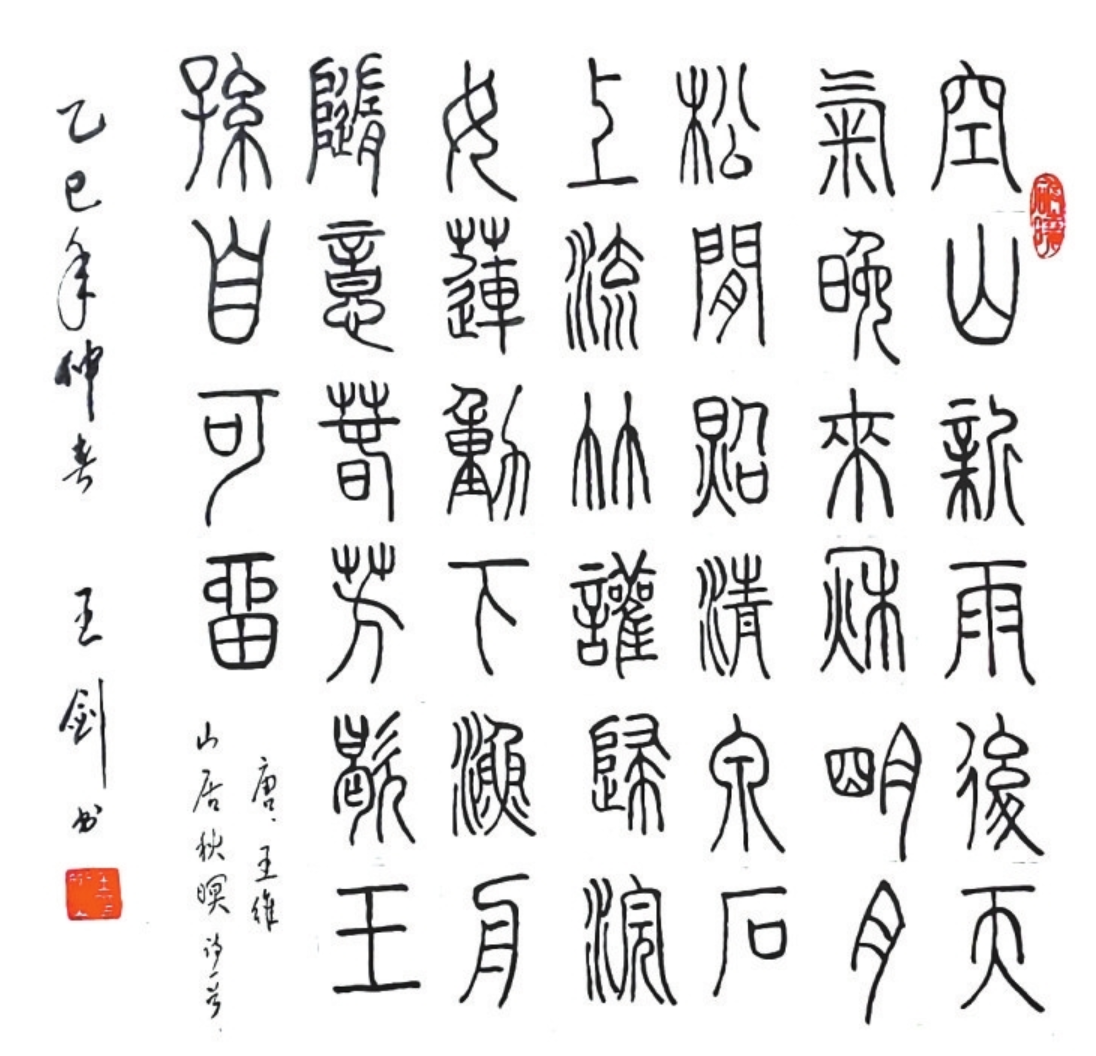 空山新雨後天
氣晚來秋明月
松閒照清泉石
上流竹讙歸浣
女蓮動下漁舟
隨意萅芳歇王
孫自可畱
唐、王維
山居秋暝诗一首
乙巳年仲春 王剑书